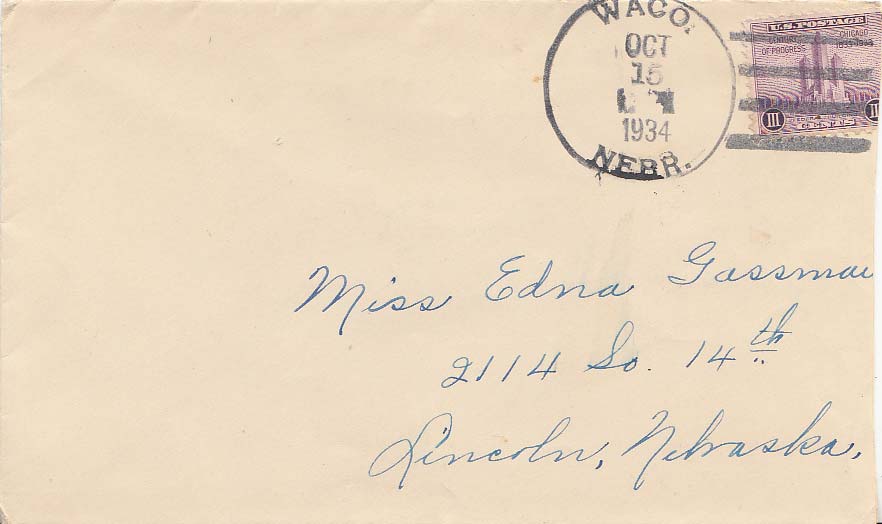 WACO.
OCT
15
1934
NEBR.
U.S. POSTAGE
CENTURY OF PROGRESS
CHICAGO 1833-1933
III III
CENTS
Miss Edna Gassman
2114 So. 14th
Lincoln, Nebraska.